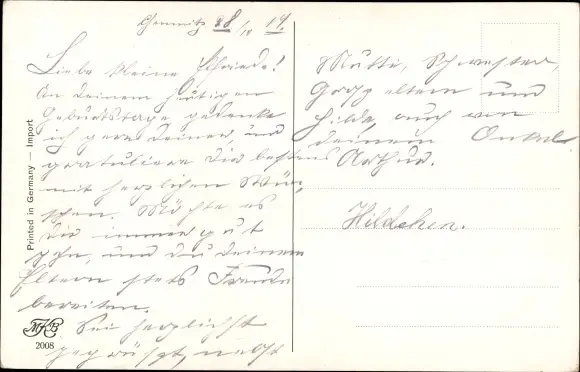 Chemnitz 28/10 14.
Liebe kleine Elfriede!
An deinem heutigen
Geburtstage, gedenke
ich gern deiner und
gratuliere dir bestens
mit herzlichen Wün,
schen. Möchte es
dir immer gut
gehn, und du deinen
Eltern stets Freude
bereiten.
Sei herzlichst
gegrüßt, nebst
Mutti, Schwester,
Großeltern und
Hilde, auch von
deinem Onkel
Arthur.
Hildchen.
Printed in Germany — Import
MKB
2008